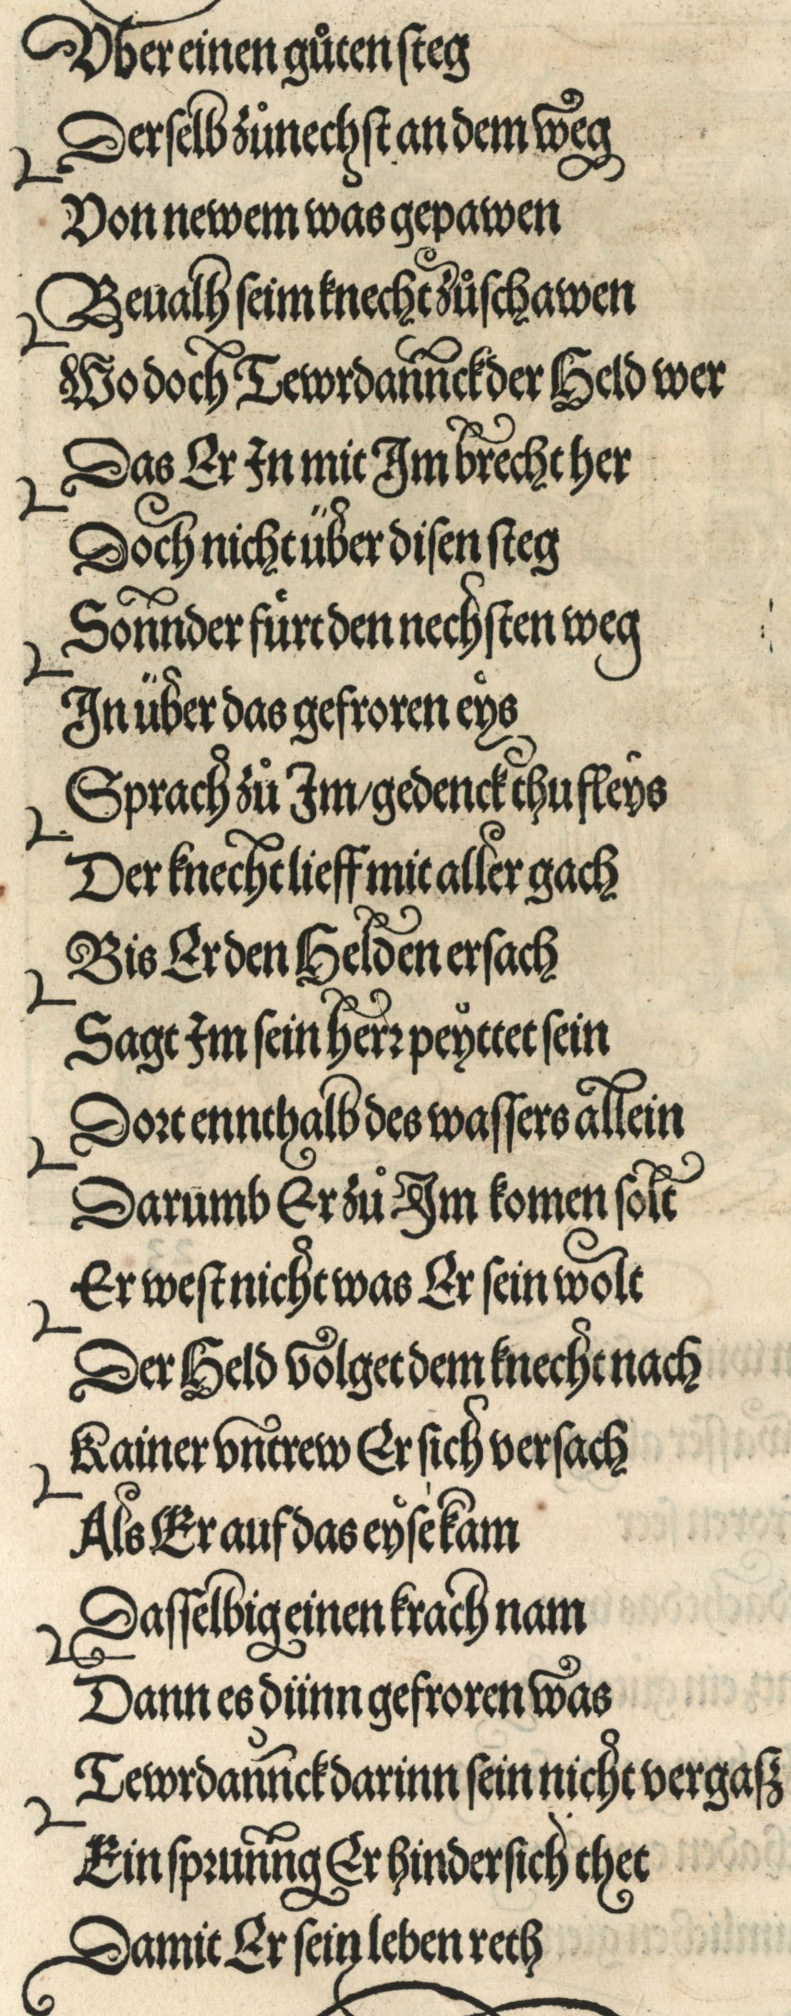 Vber einen gůten steg
Derselb zůnechst an dem weg
Von newem was gepawen
Beualh seim knecht zůschawen
Wo doch Tewrdannck der Held wer
Das Er In mit Im brecht her
Doch nicht über disen steg
Sonnder fürt den nechsten weg
In über das gefroren eys
Sprach zů Im/gedenck thu fleys
Der knecht lieff mit aller gach
Bis Er den Helden ersach
Sagt Im sein herr peyttet sein
Dort ennthalb des wassers allein
Darumb Er zů Im komen solt
Er west nicht was Er sein wolt
Der Held volget dem knecht nach
Kainer vntrew Er sich versach
Als Er auf das eyse kam
Dasselbig einen krach nam
Dann es dünn gefroren was
Tewrdannck darinn sein nicht vergasz
Ein sprunng Er hindersich thet
Damit Er sein leben reth